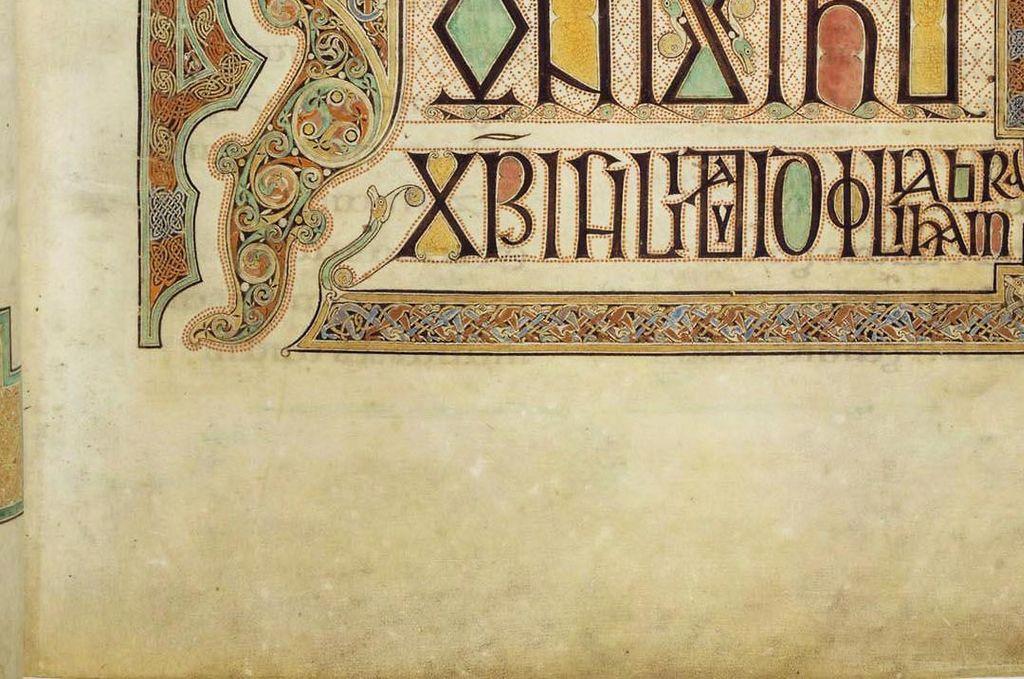 ONIS IHU
XPI FILII DAVID FILII ABRAHAM